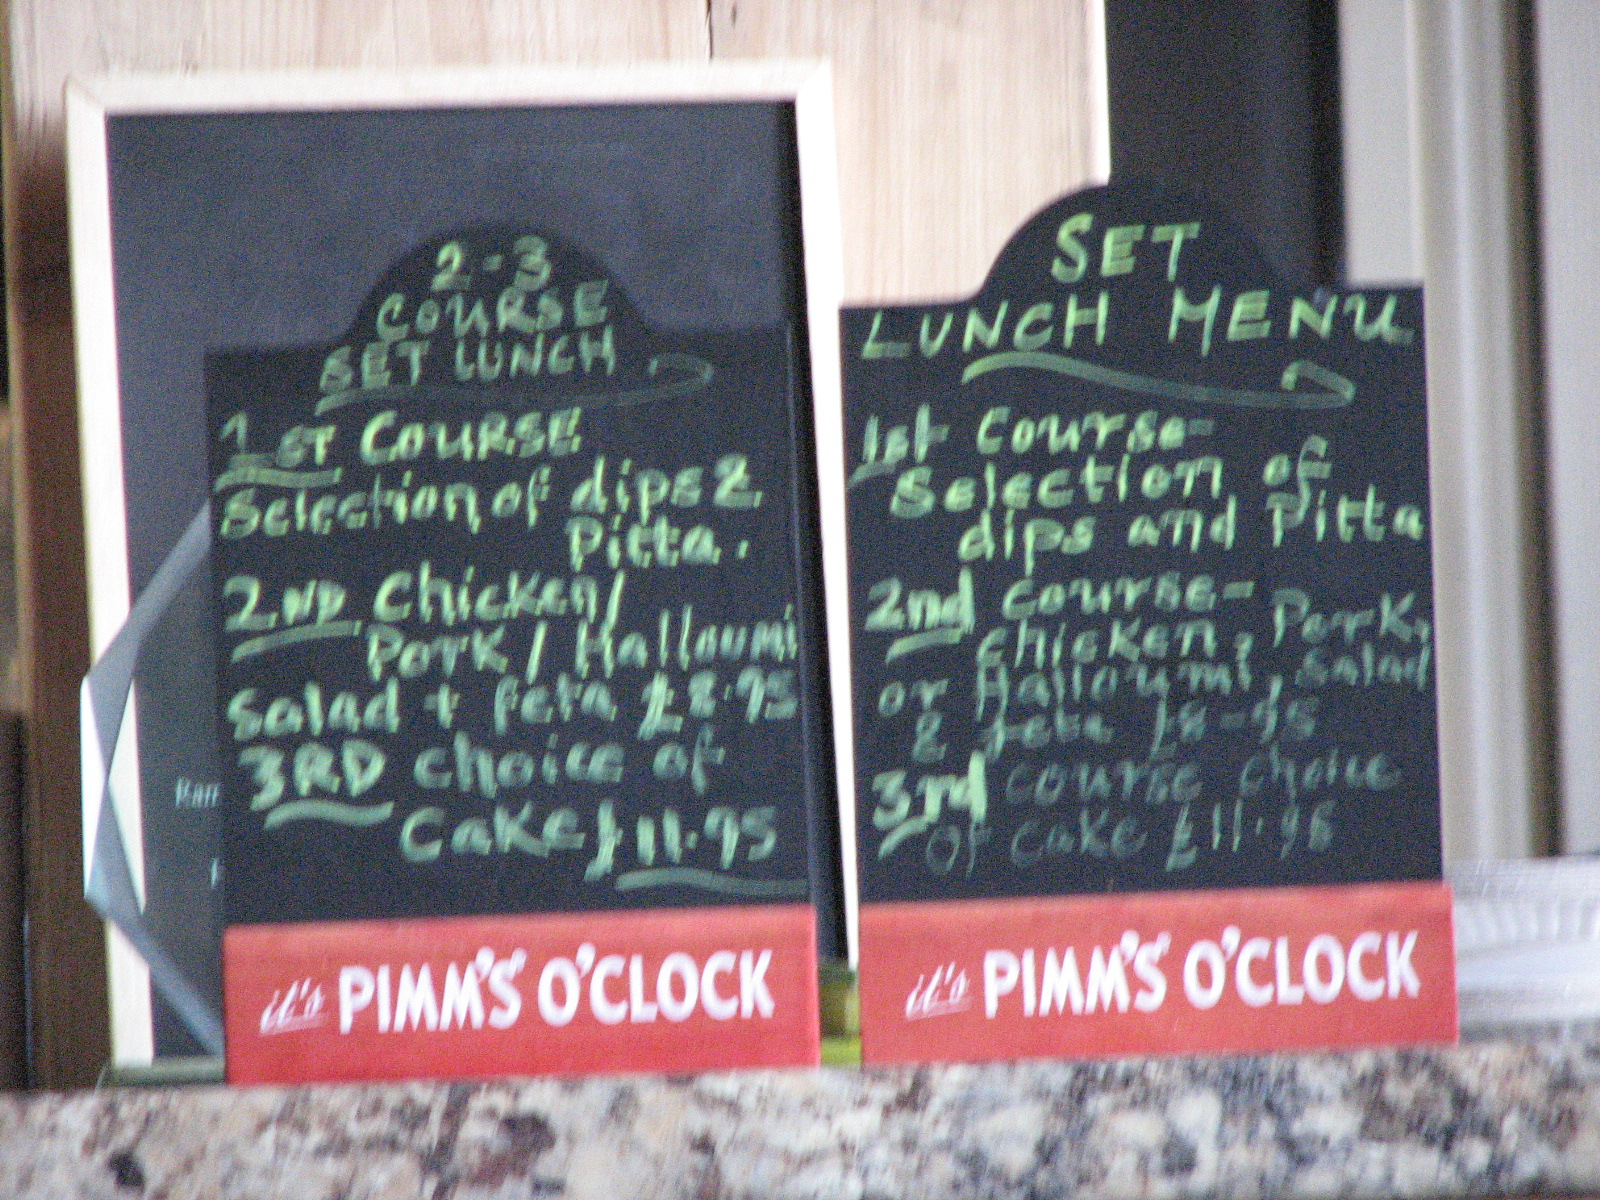 2-3
COURSE
SET LUNCH
1ST COURSE
Selection of dips 2
Pitta.
2ND Chicken/
Pork / Halloumi
Salad + feta £8.95
3RD choice of
Cake £11.95
it's PIMM'S O'CLOCK
SET
LUNCH MENU
1st Course-
Selection of
dips and Pitta
2nd Course-
chicken, Pork,
or Halloumi, Salad
& feta £8-95
3rd course choice
of cake £11.95
it's PIMM'S O'CLOCK